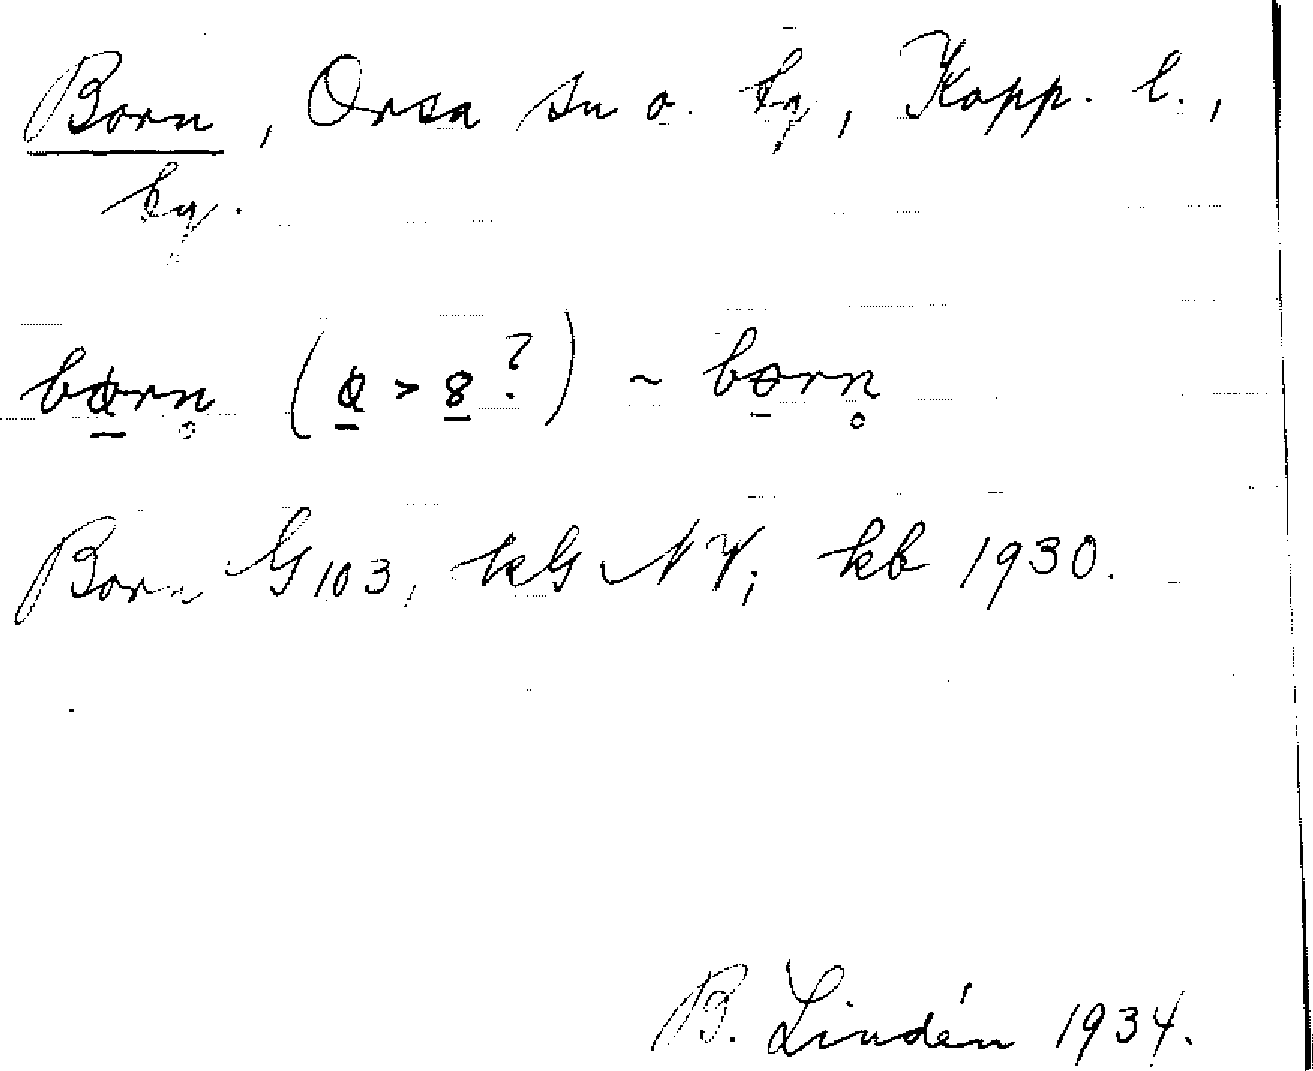 Born, Orsa sn o. tg, Kopp. l.,
by.
born ( > 8?) ~ born
Born G 103, kG NV; kb 1930.
B. Lindén 1934.